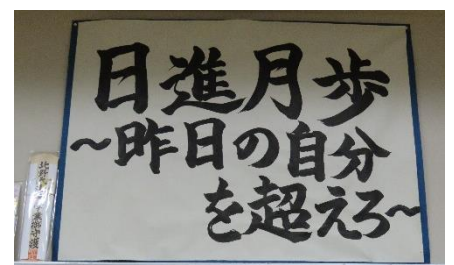 日進月歩
～昨日の自分
を超えろ～